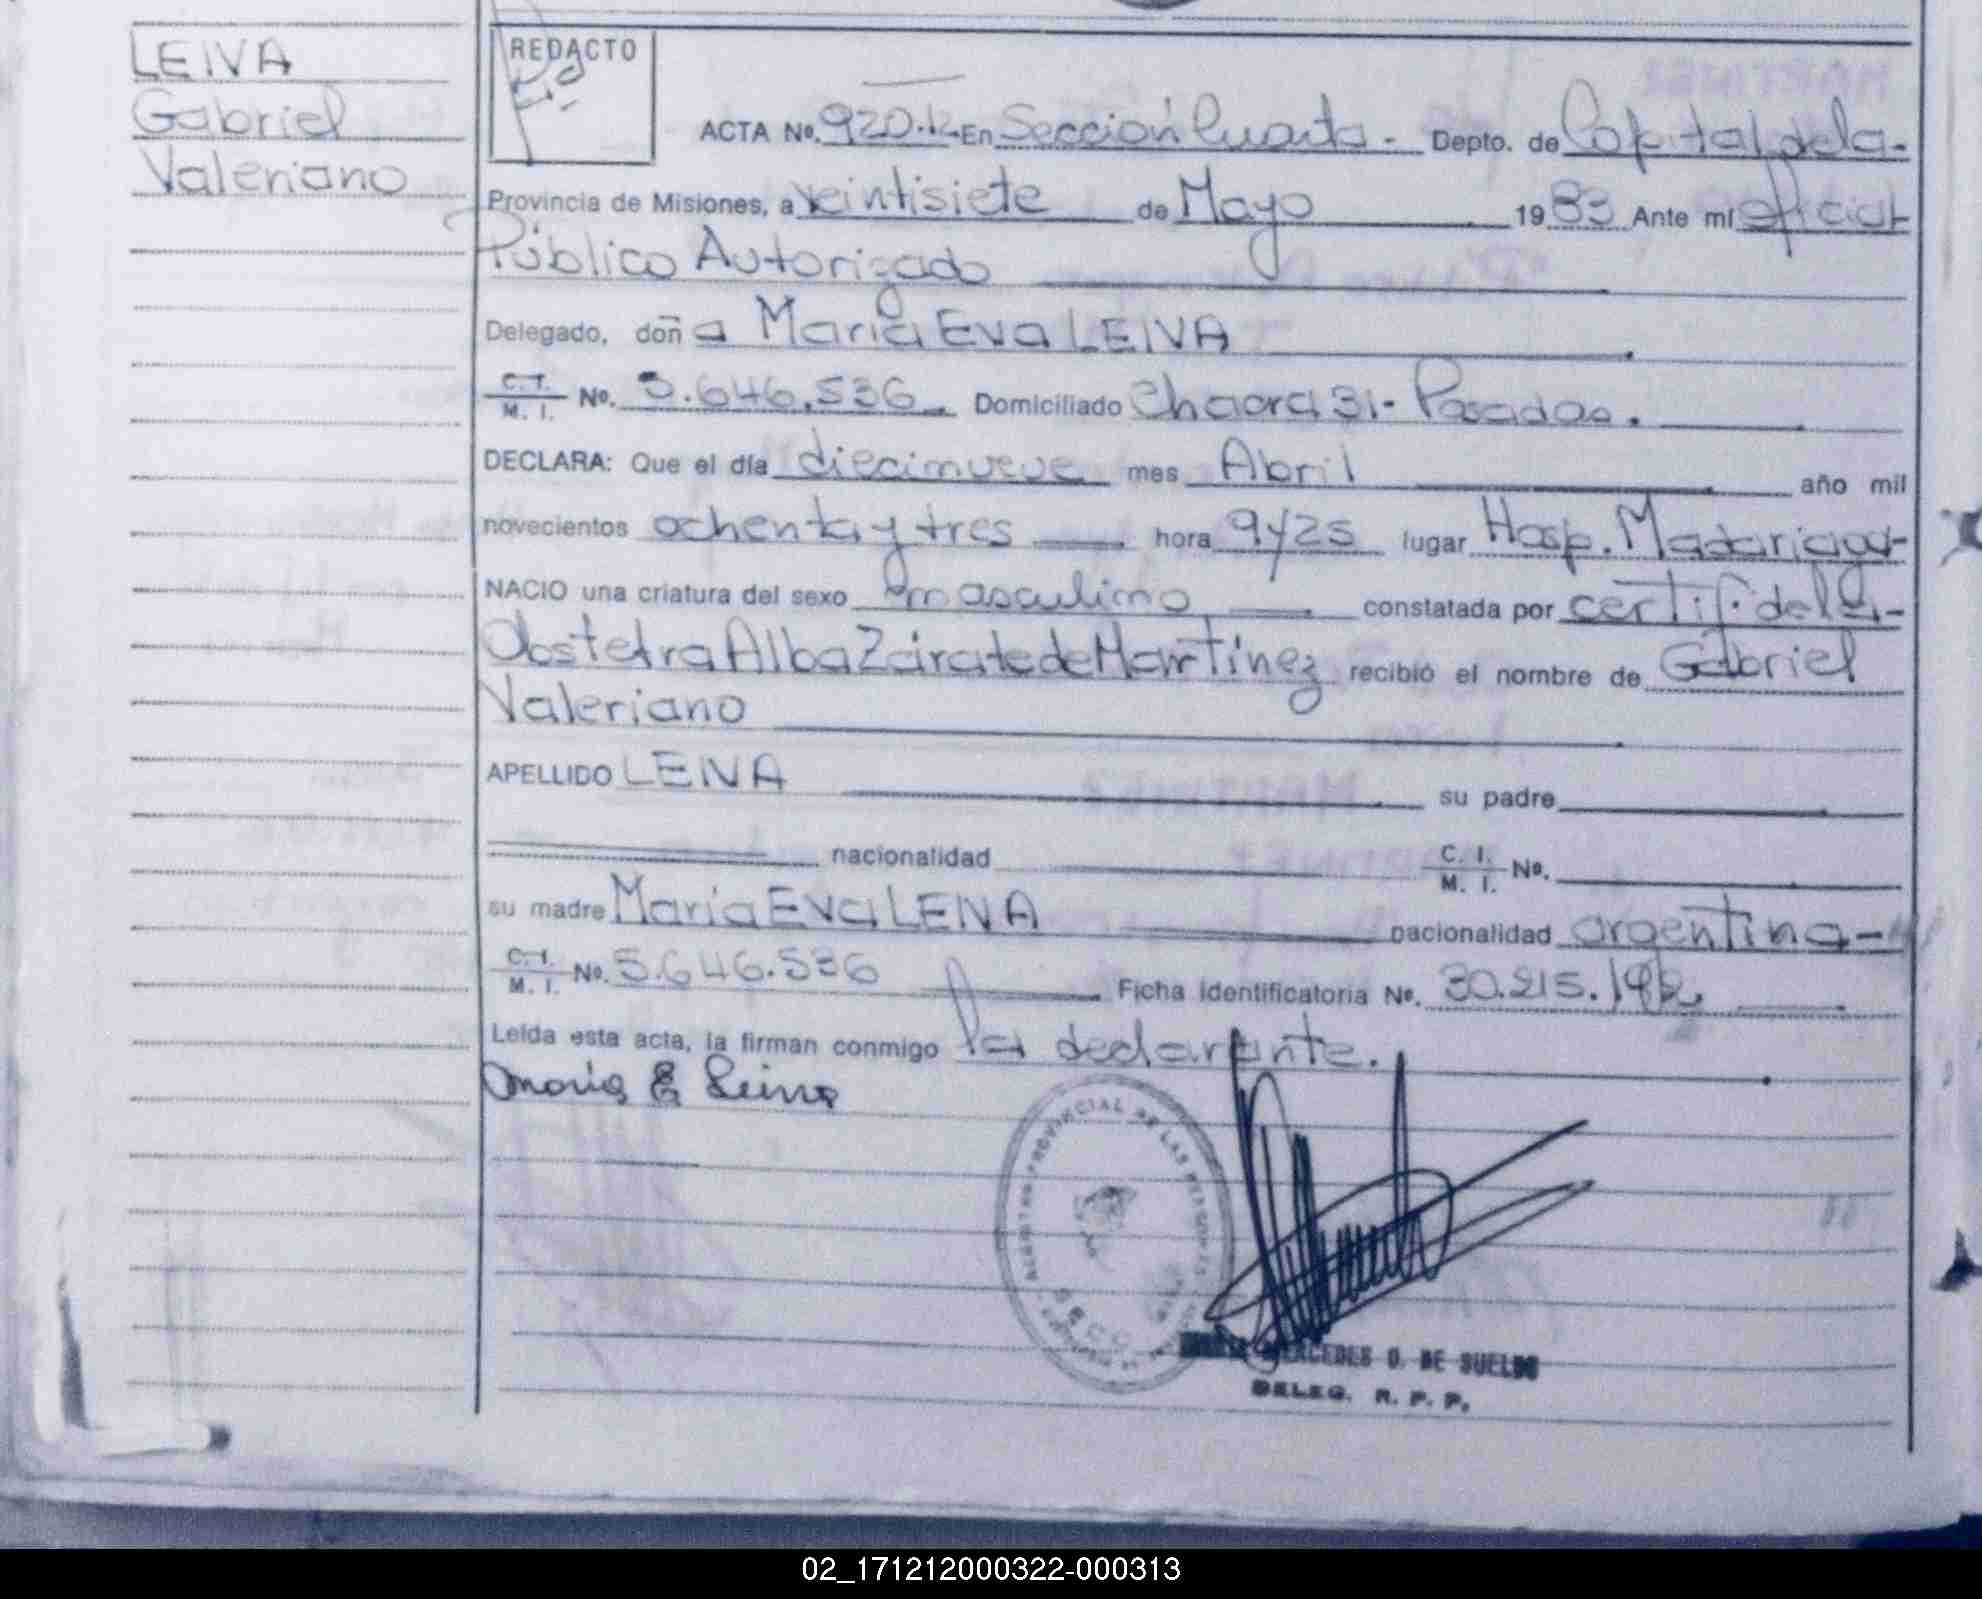 LEIVA
Gabriel
Valeriano
REDACTO
ACTA Nº. 920.12 En Sección Cuarta - Depto. de Capital de la-
Provincia de Misiones, a veintisiete de Mayo 1983 Ante mí oficial
Público Autorizado
Delegado, doña María Eva LEIVA
C. I. / M. I. Nº. 5.646.536. Domiciliado Chacra 31- Posadas.
DECLARA: Que el día diecinueve mes Abril año mil
novecientos ochenta y tres hora 9y25 lugar Hosp. Madariaga-
NACIO una criatura del sexo masculino constatada por certif. de la-
Obstetra Alba Zárate de Martínez recibió el nombre de Gabriel
Valeriano
APELLIDO LEIVA su padre
nacionalidad C. I. / M. I. Nº.
su madre María Eva LEIVA nacionalidad argentina-
C. I. / M. I. Nº. 5.646.536 Ficha identificatoria Nº. 30.215.192
Leída esta acta, la firman conmigo la declarante.
Maria E Leiva
PROVINCIAL DE LAS PERSONAS
MERCEDES O. DE SUELDO
DELEG. R. P. P.
02_171212000322-000313